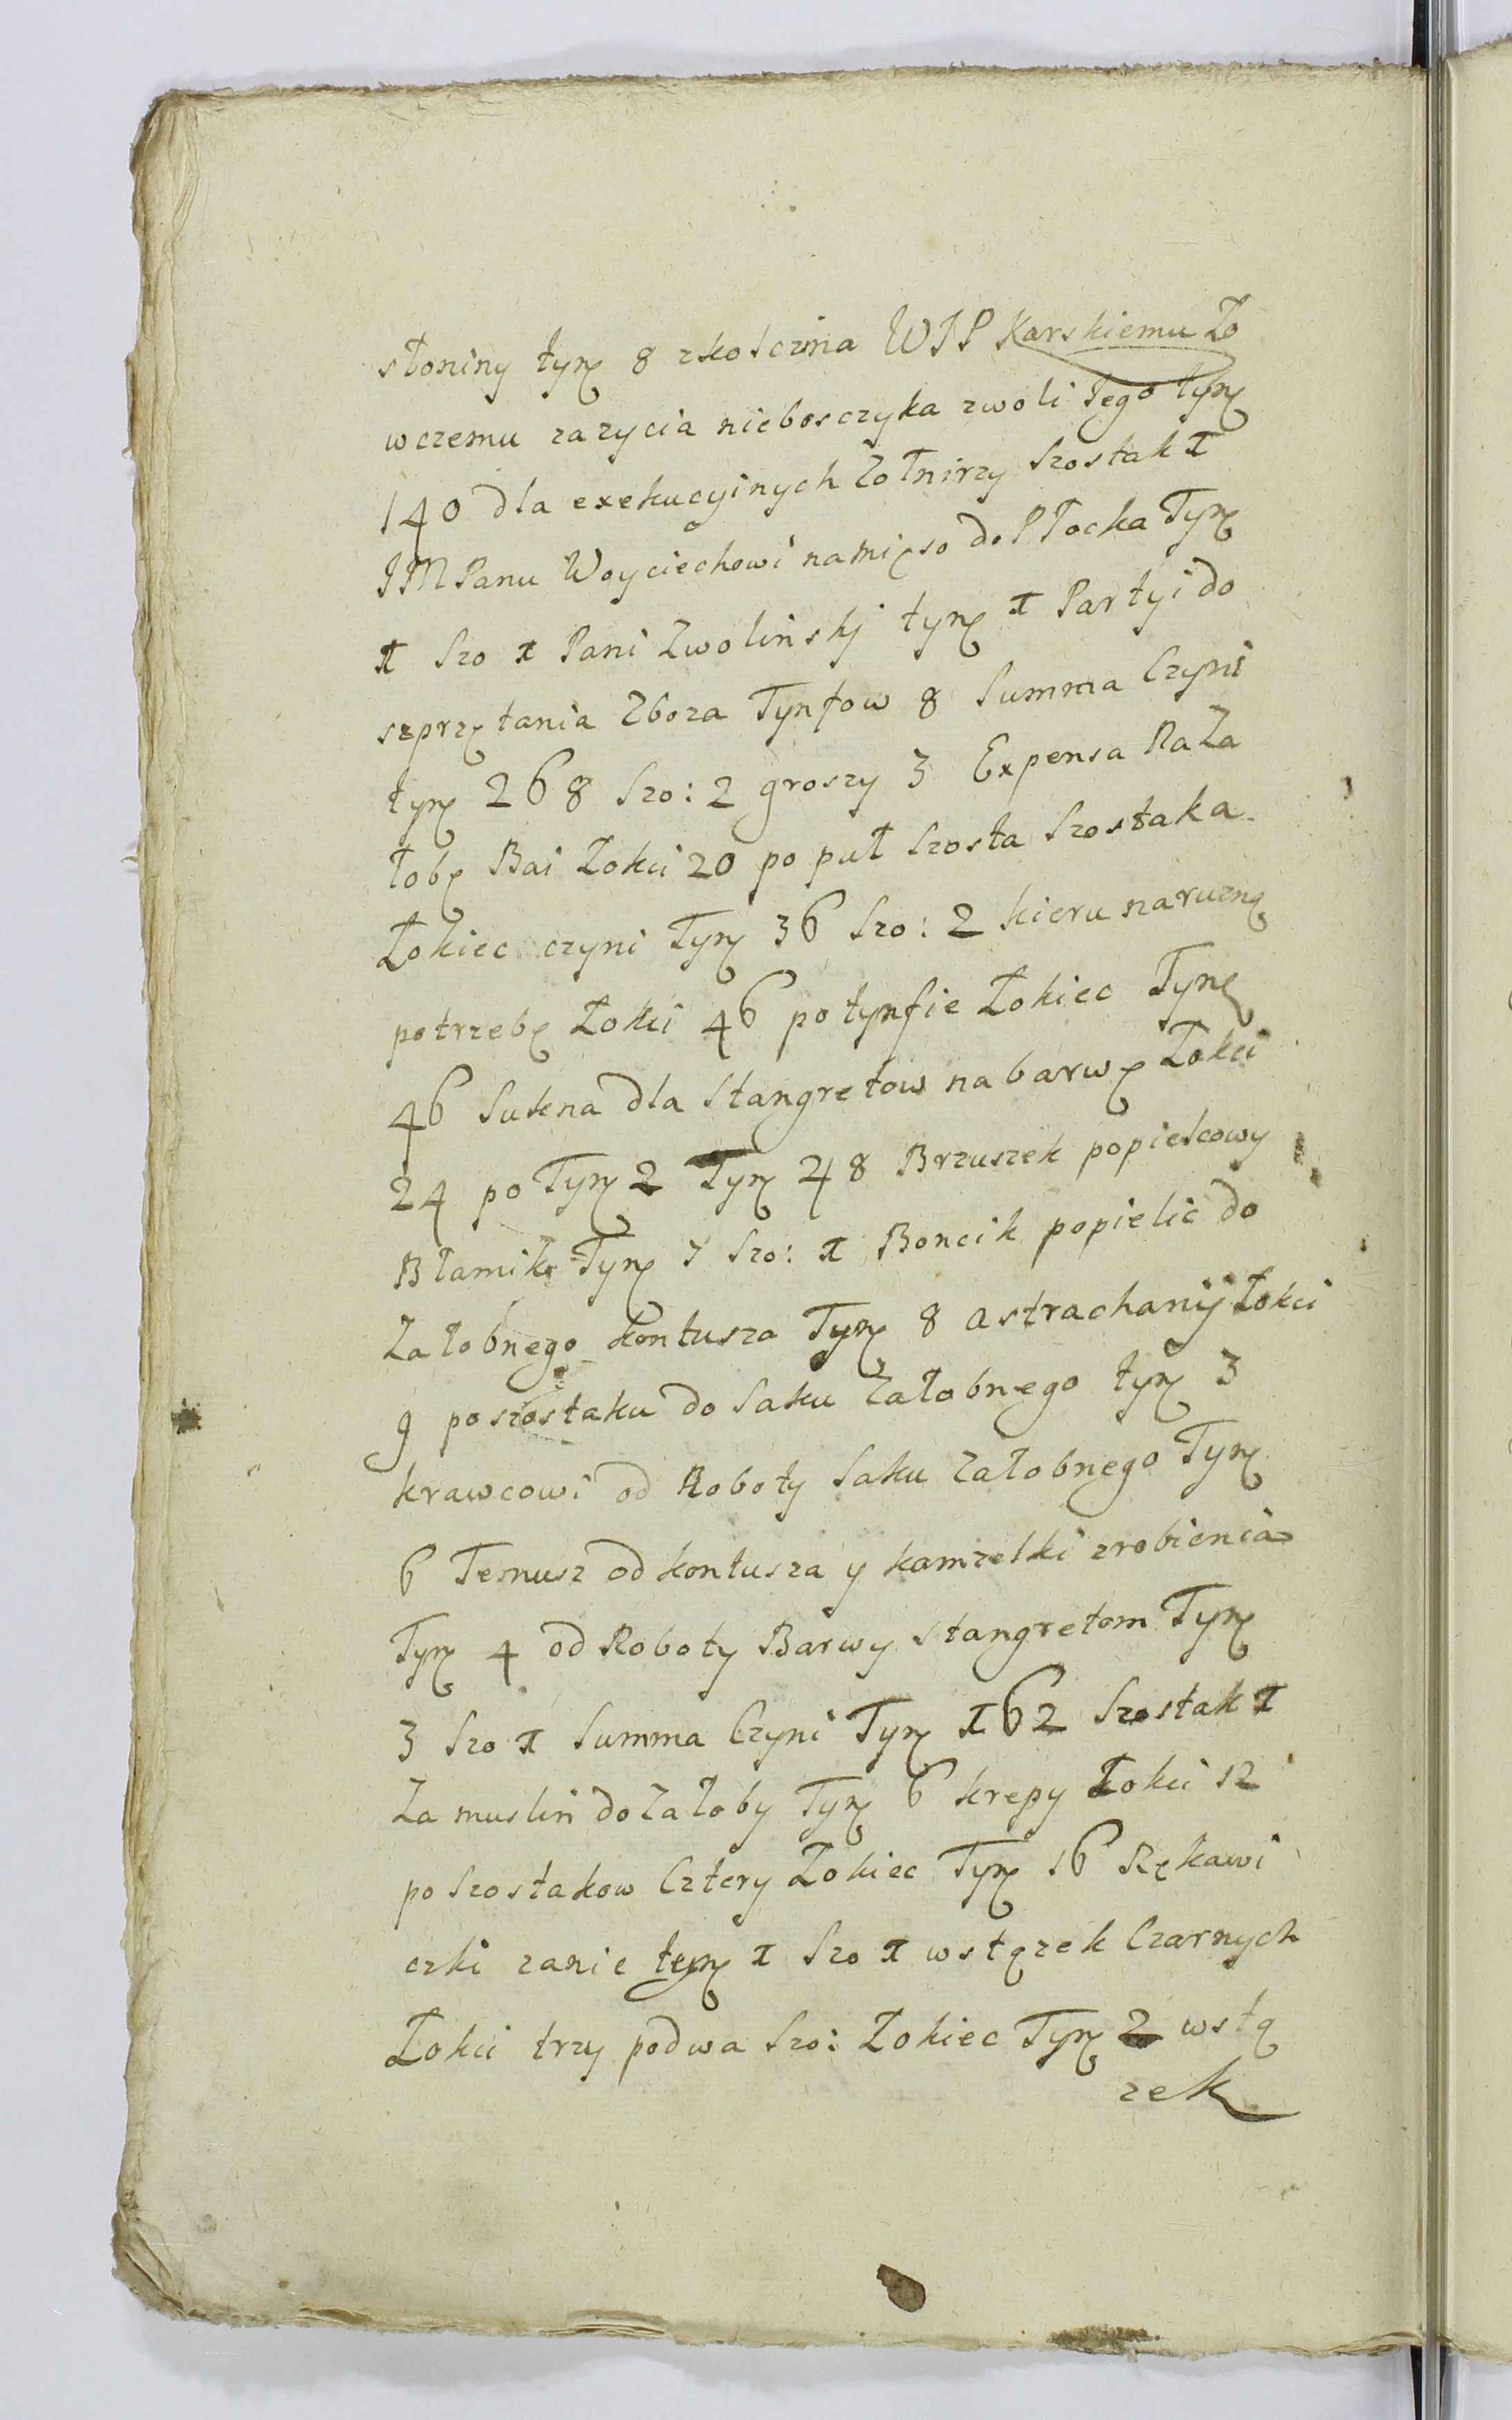 słoniny tyn 8 zkosczina WJP Karskiemu Lo
wczemu zazycia nieboszczyka zwoli Jego tyn
140 dla exekucyinych Zołnirzy Szostak 1
JM Panu Woyciechowi na mięso do Płocka Tyn
1 Szo 1 Pani Zwolinskj tyn 1 Partyi do
szprzętania Zboza Tynfow 8 Summa Czyni
tyn 268 Szo: 2 groszy 3 Expensa Na Za
łobę Bai Łokci 20 po puł Szosta Szostaka
Łokiec czyni Tyn 36 Szo: 2 kieru na ruzną
potrzebę Łokci 46 po tynfie Łokiec Tyn
46 Sukna dla Stangretow na barwę Łokci
24 po Tyn 2 Tyn 48 Brzuszek popielcowy
Błamik Tyn 7 Szo: 1 Boncik popielic do
Załobnego kontusza Tyn 8 astrachanij Łokci
9 po szostaku do Saku Załobnego tyn 3
krawcowi od Roboty Saku Załobnego Tyn
6 Temusz od kontusza y kamzelki zrobienia
Tyn 4 od Roboty Barwy stangretom Tyn
3 Szo 1 Summa Czyni Tyn 162 Szostak 1
Za muslin do Załoby Tyn 6 krepy Łokci 12
po Szostakow Cztery Łokiec Tyn 16 Rękawi
czki zanie tyn 1 Szo 1 wstązek Czarnych
Łokci trzy podwa Szo: Łokiec Tyn 2 wstą
zek